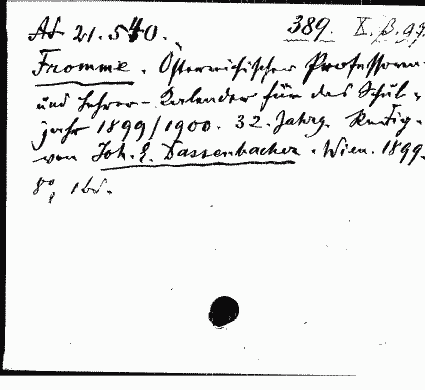 AS 21.540. 389. X. B. 97.
Fromme. Österreichischer Professoren-
und Lehrer-Kalender für das Schul-
jahr 1899/1900. 32. Jahrg. Redig.
von Joh. E. Dassenbacher. Wien. 1899.
8º, 1 Bd.